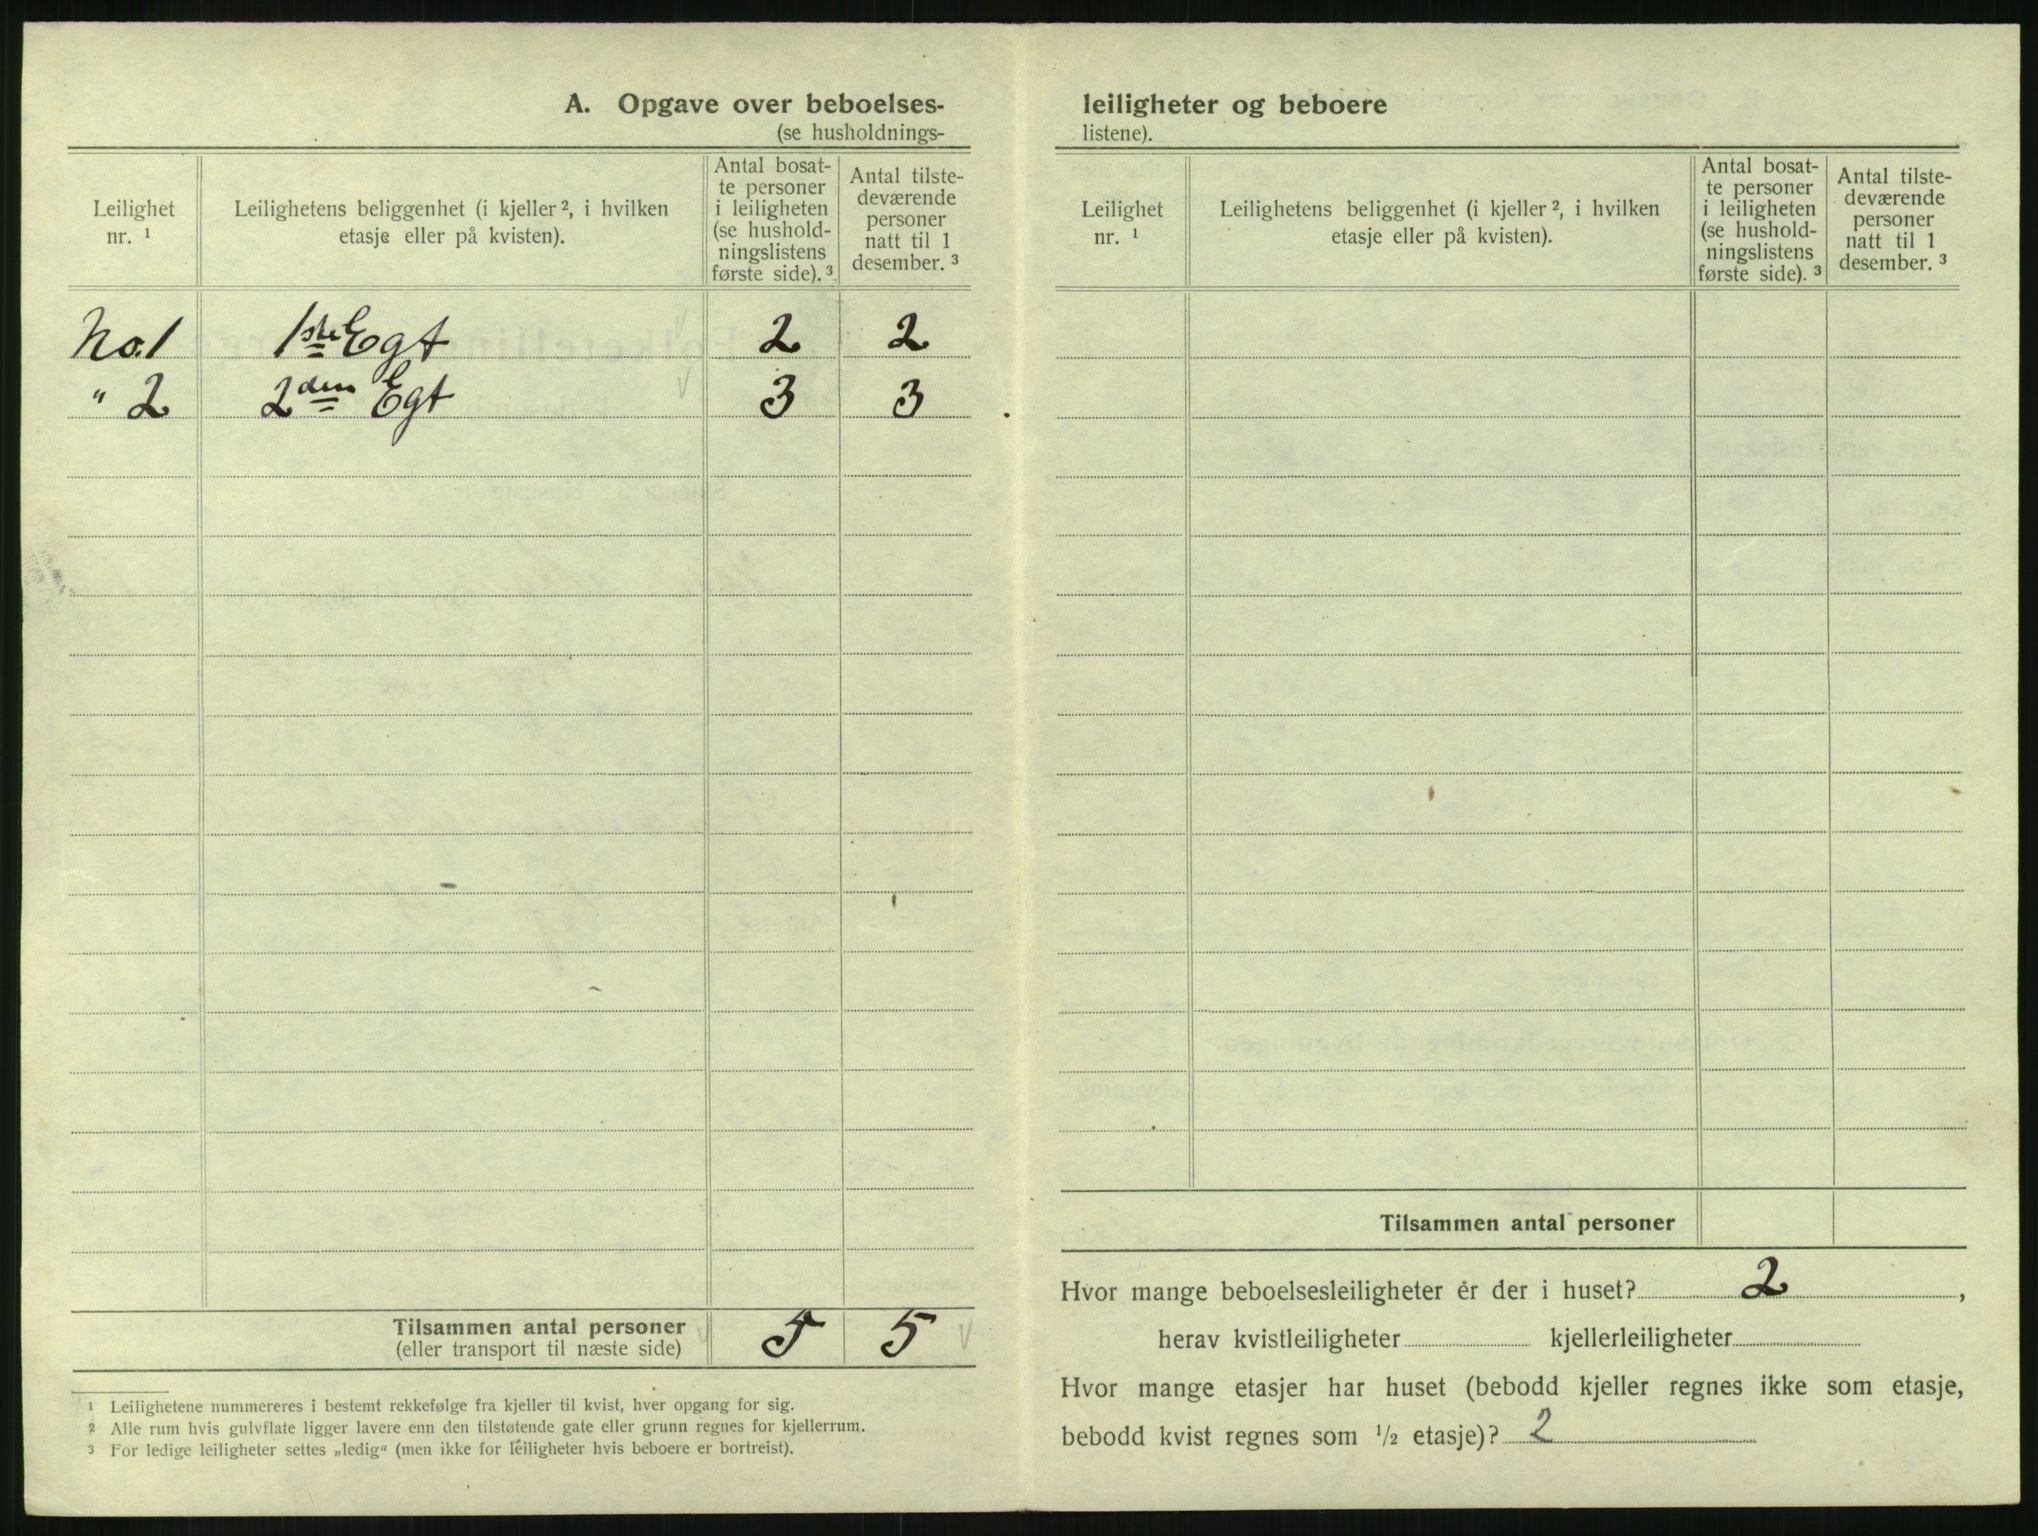 A. Opgave over beboelses-
(se husholdnings-
Leilighet nr. ¹
Leilighetens beliggenhet (i kjeller ², i hvilken
etasje eller på kvisten).
Antal bosat-
te personer
i leiligheten
(se hushold-
ningslistens
første side). ³
Antal tilste-
deværende
personer
natt til 1
desember. ³
No. 1 1ste Egt 2 2
" 2 2den Egt 3 3
Tilsammen antal personer 5 5
(eller transport til næste side)
¹ Leilighetene nummereres i bestemt rekkefølge fra kjeller til kvist, hver opgang for sig.
² Alle rum hvis gulvflate ligger lavere enn den tilstøtende gate eller grunn regnes for kjellerrum.
³ For ledige leiligheter settes „ledig" (men ikke for leiligheter hvis beboere er bortreist).
leiligheter og beboere
listene).
Leilighet nr. ¹
Leilighetens beliggenhet (i kjeller ², i hvilken
etasje eller på kvisten).
Antal bosat-
te personer
i leiligheten
(se hushold-
ningslistens
første side). ³
Antal tilste-
deværende
personer
natt til 1
desember. ³
Tilsammen antal personer
Hvor mange beboelsesleiligheter er der i huset? 2 ,
herav kvistleiligheter kjellerleiligheter
Hvor mange etasjer har huset (bebodd kjeller regnes ikke som etasje,
bebodd kvist regnes som ½ etasje)? 2